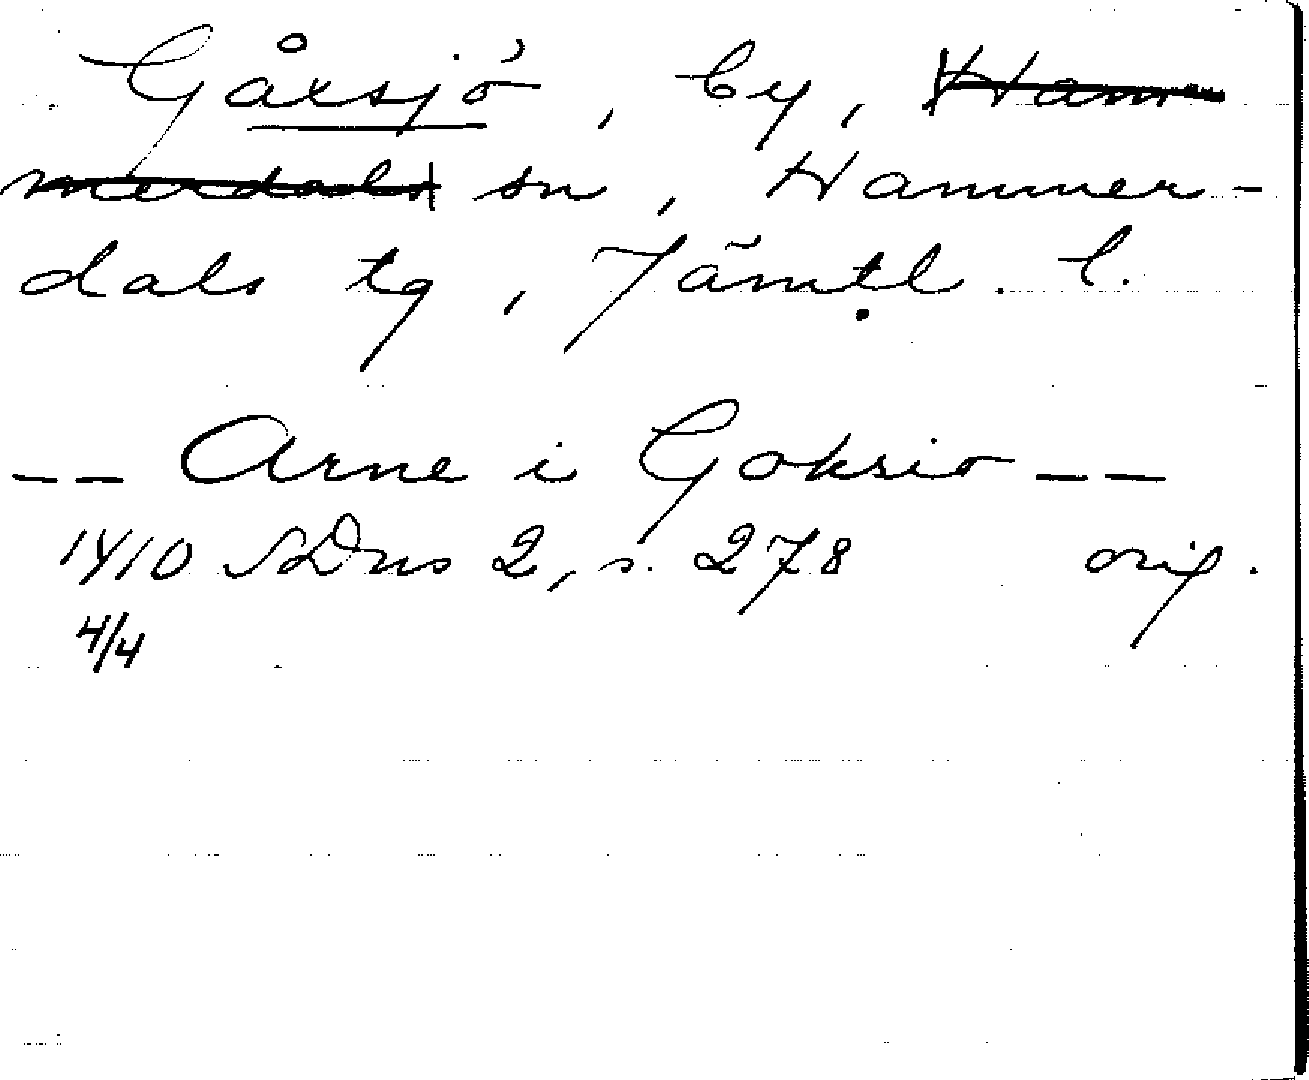 Gåxsjö, by, Ham
merdals sn, Hammer-
dals tg, Jämtl. l.
-- Arne i Goksio --
1410 SDns 2, s. 278 orig.
4/4